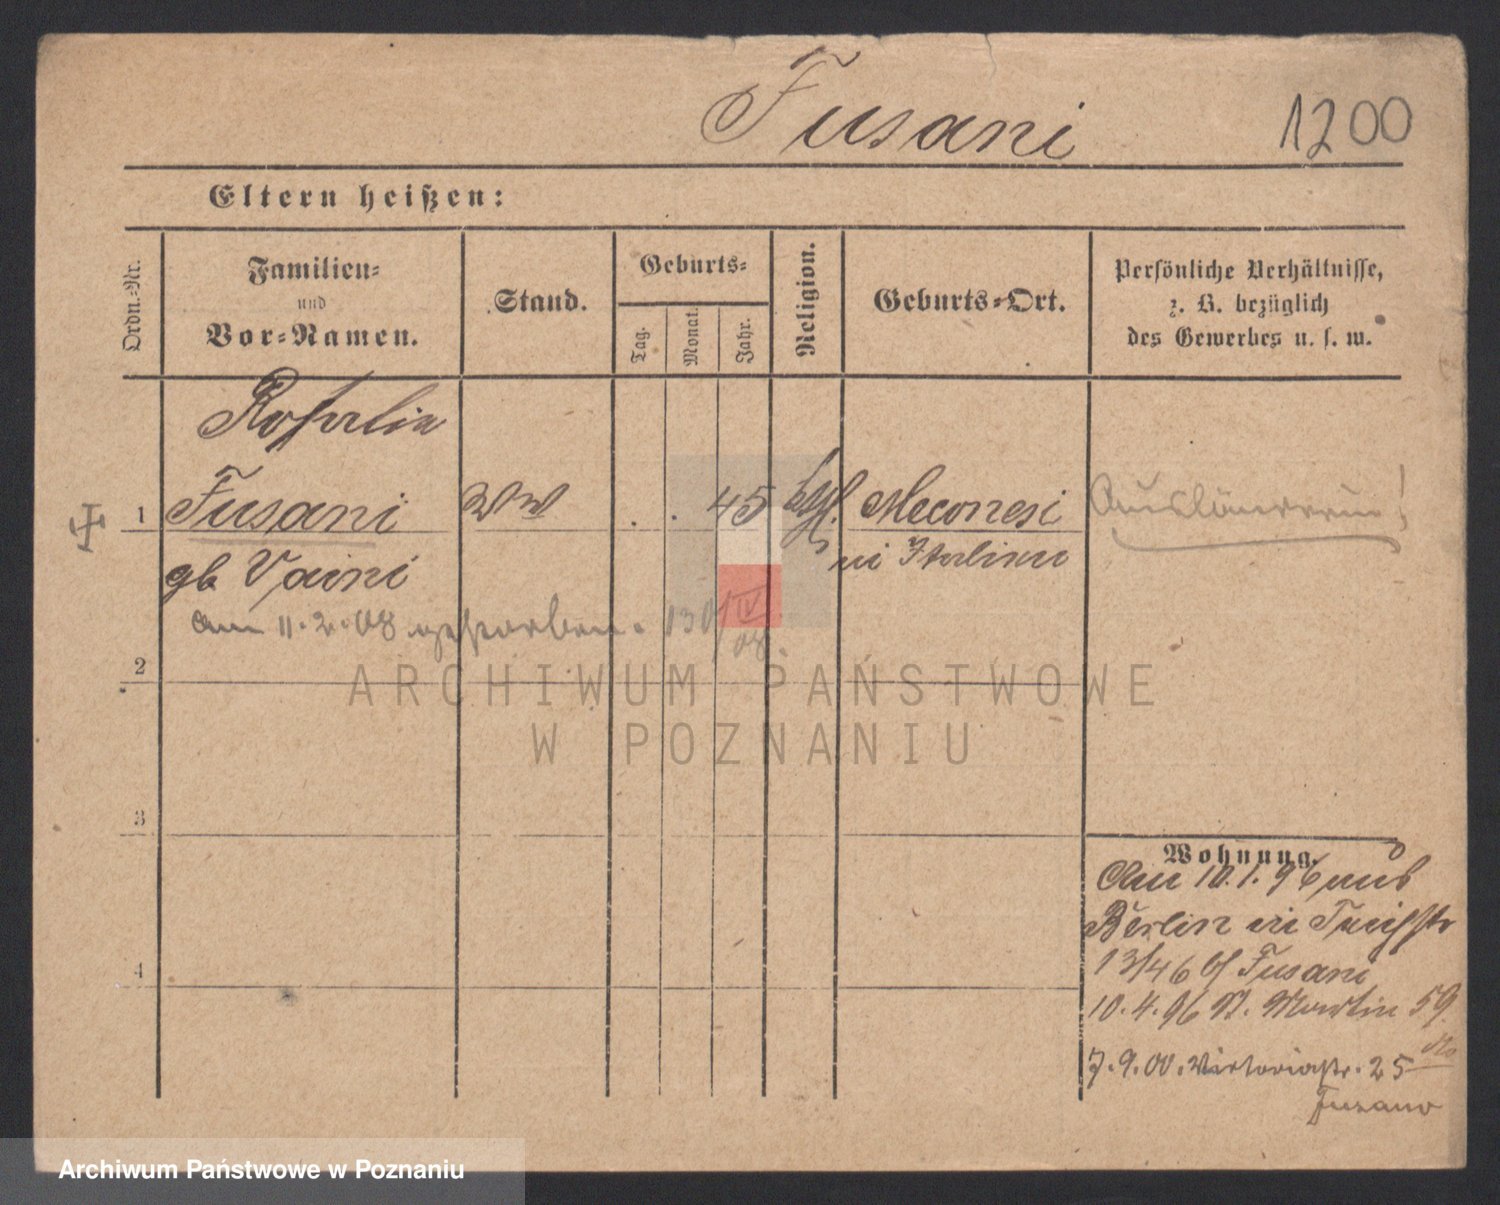 Fusani 1200
Eltern heißen:
Ordn.-Nr.
Familien-
und
Vor-Namen.
Stand.
Geburts-
Tag.
Monat.
Jahr.
Religion.
Geburts-Ort.
Persönliche Verhältnisse,
z. B. bezüglich
des Gewerbes u. s. w.
Rosalia
1 Fusani Ww . . 45 Meconesi Ausländerin!
gb Vaini in Italien
am 11.2.08 gestorben. 130/IV
08.
2
ARCHIWUM PAŃSTWOWE
W POZNANIU
3
4
Wohnung.
Am 10.1.96 aus
Berlin in
13/14 b/ Fusani
10.4.96 St. Martin 59
7.9.00. Viktoriastr. 25
Fusano
Archiwum Państwowe w Poznaniu